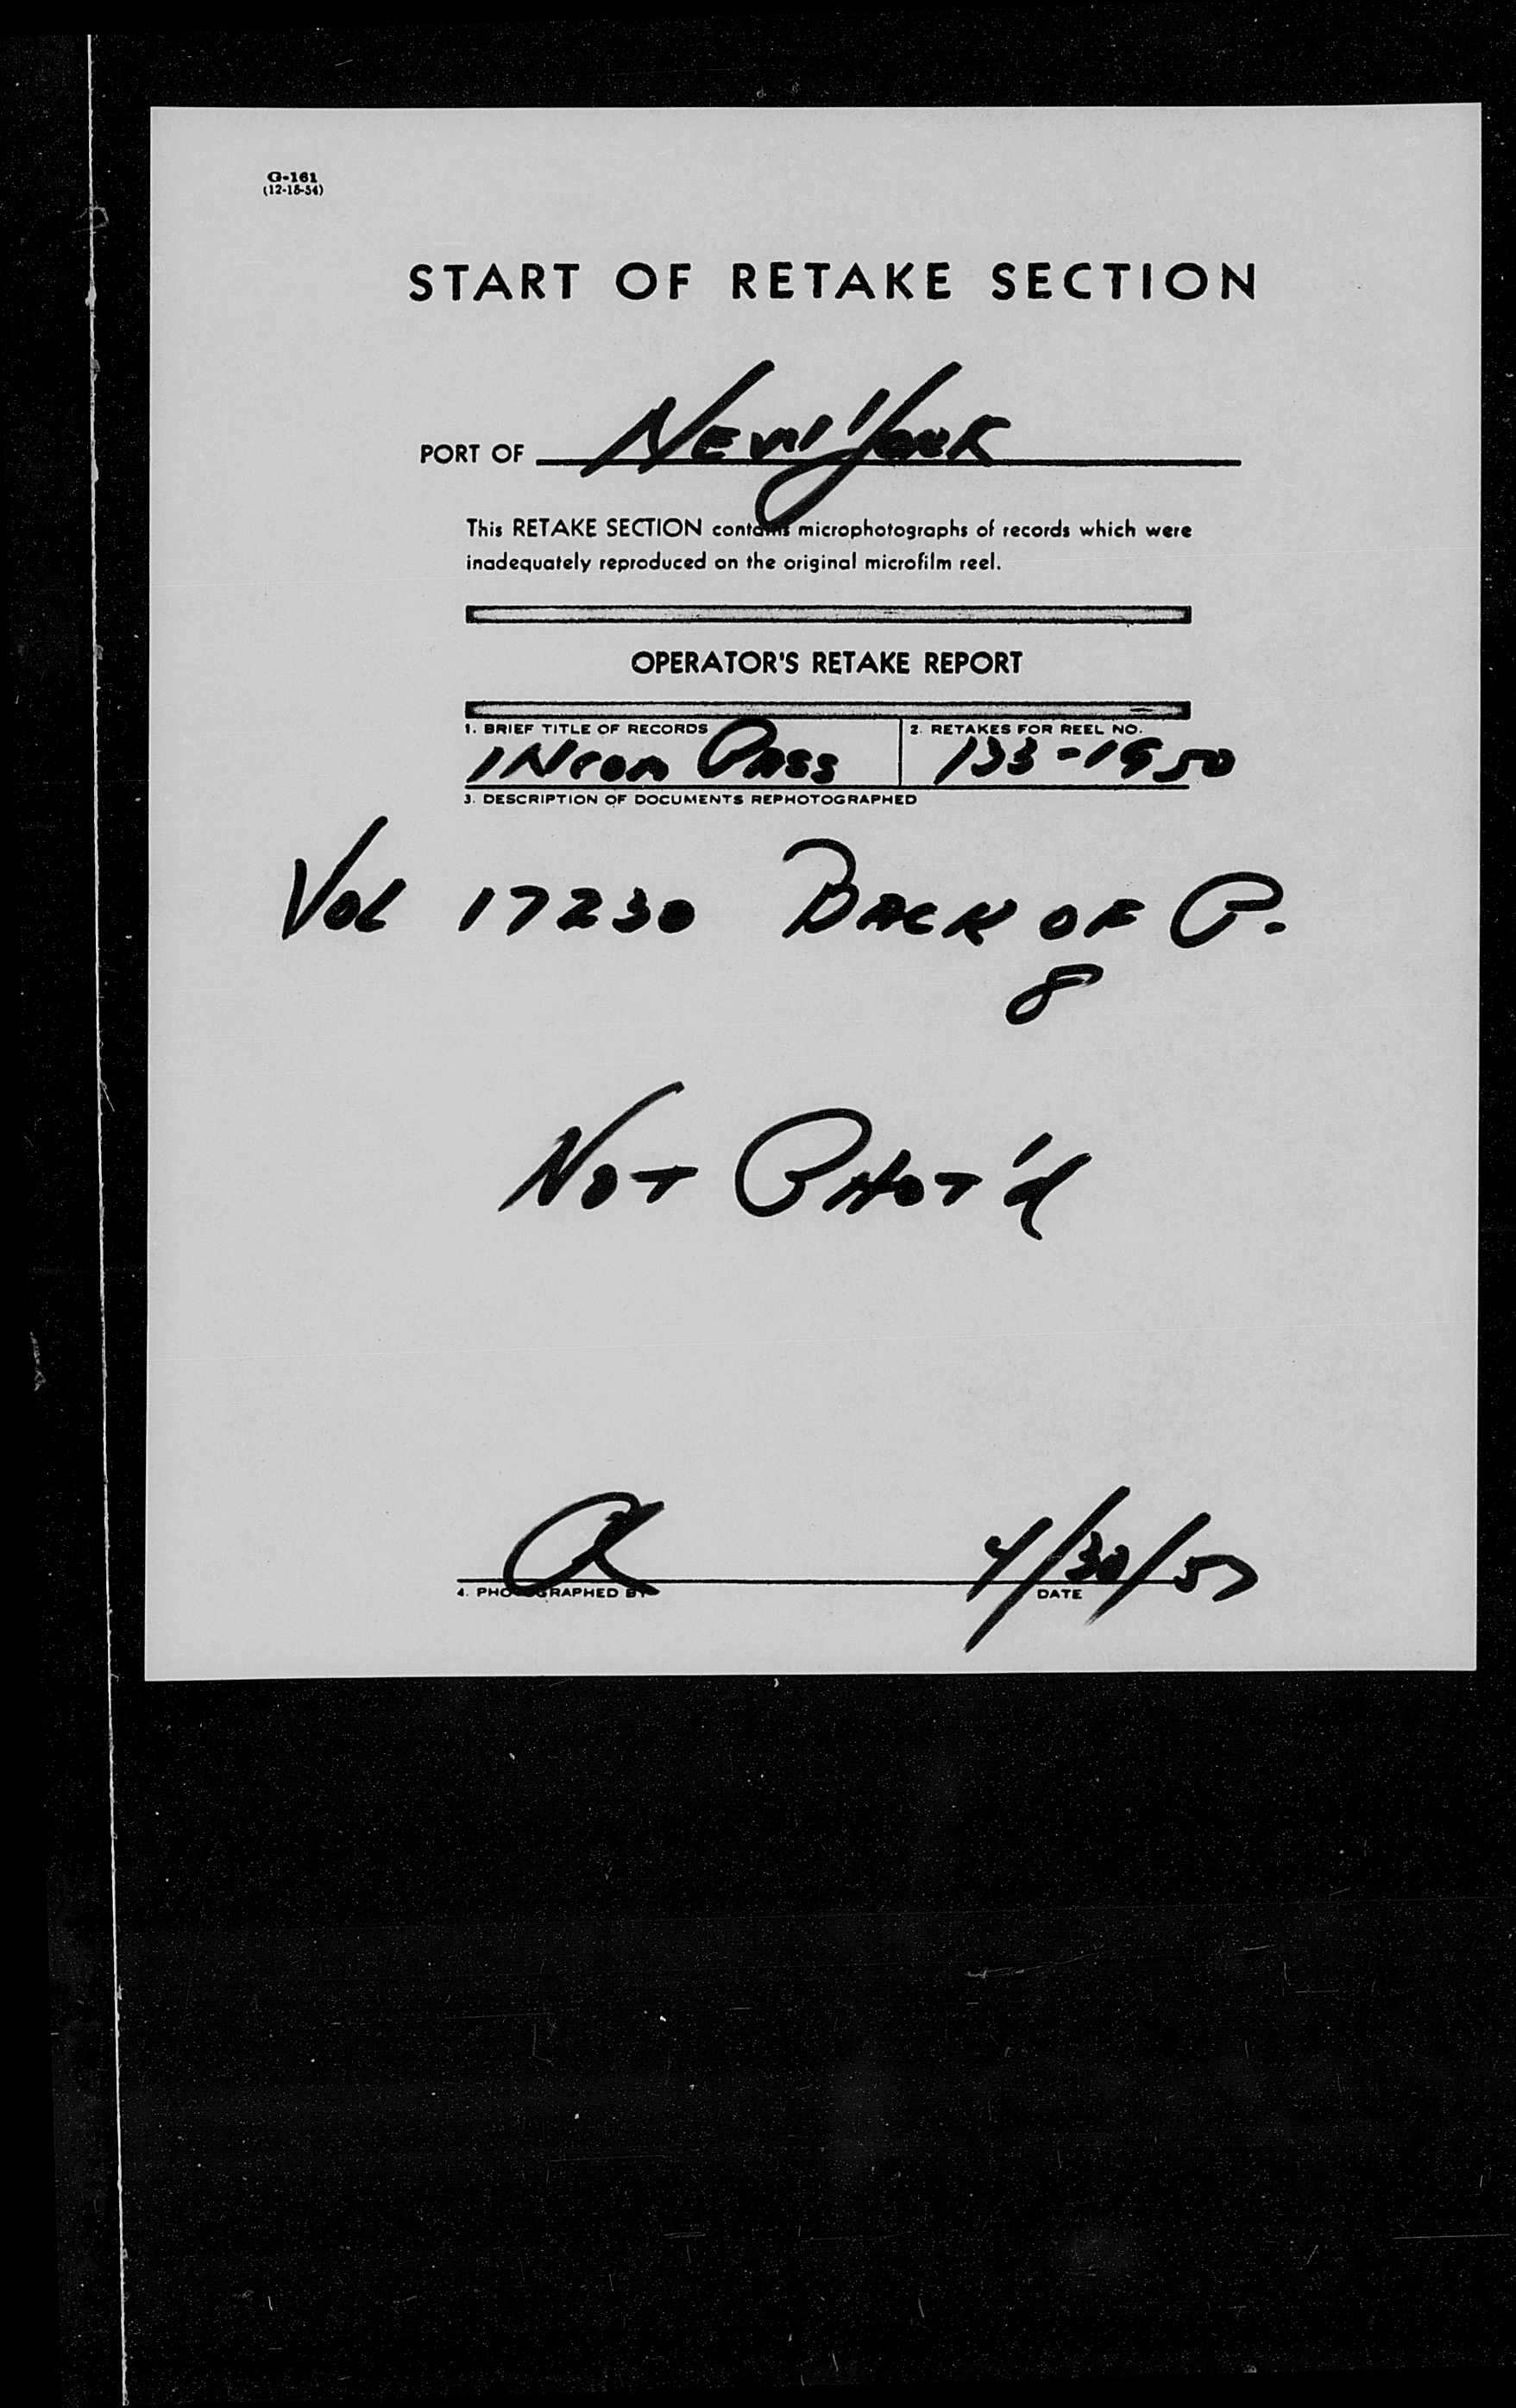 G-161
(12-15-54)
START OF RETAKE SECTION
PORT OF New York
This RETAKE SECTION contains microphotographs of records which were
inadequately reproduced on the original microfilm reel.
OPERATOR'S RETAKE REPORT
1. BRIEF TITLE OF RECORDS
2. RETAKES FOR REEL NO.
INCOM PASS
133-1950
3. DESCRIPTION OF DOCUMENTS REPHOTOGRAPHED
Vol 17230 BACK OF P.
8
NOT PHOT'd
4/30/57
4. PHOTOGRAPHED BY
DATE